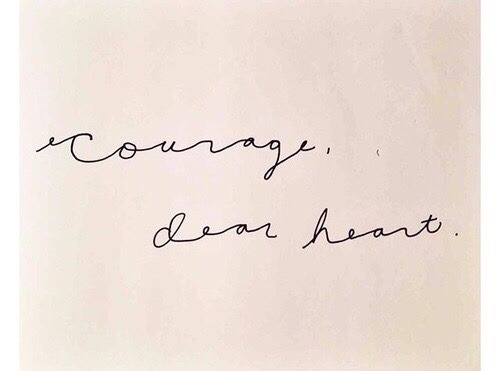 courage,
dear heart.